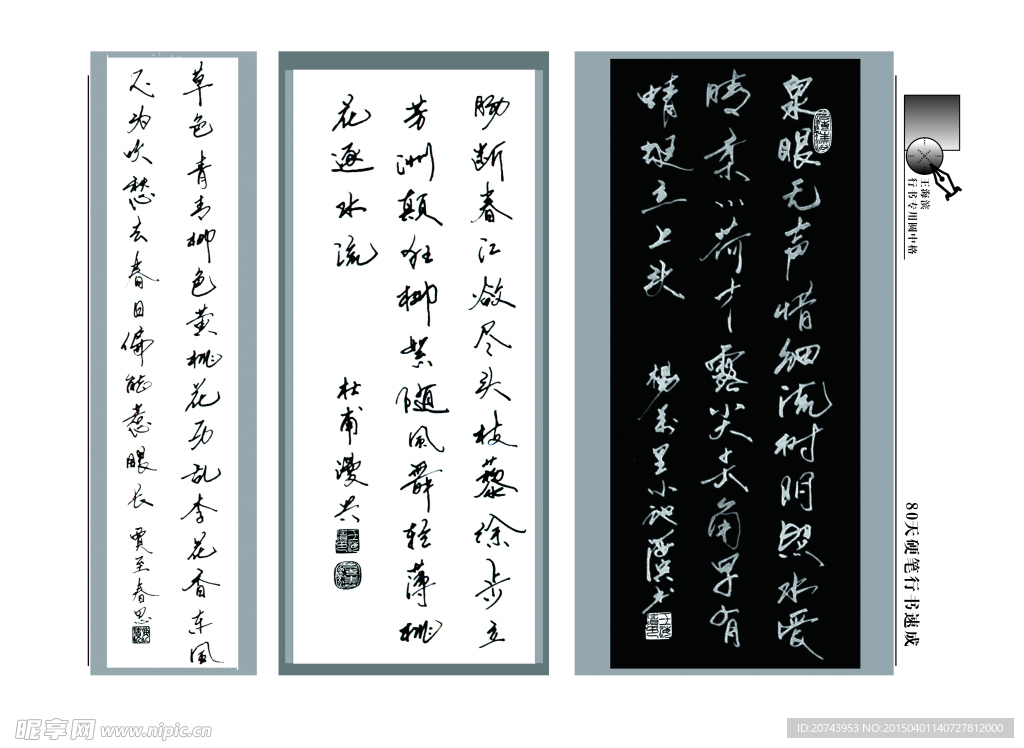 王海滨
行书专用圆中格
80天硬笔行书速成
泉眼无声惜细流树阴照水爱
晴柔小荷才露尖尖角早有
蜻蜓立上头 杨万里小池海滨书
肠断春江欲尽头杖藜徐步立
芳洲颠狂柳絮随风舞轻薄桃
花逐水流 杜甫漫兴
草色青青柳色黄桃花历乱李花香东风
不为吹愁去春日偏能惹恨长 贾至春思
昵享网 www.nipic.cn
ID:20743953 NO:20150401140727812000